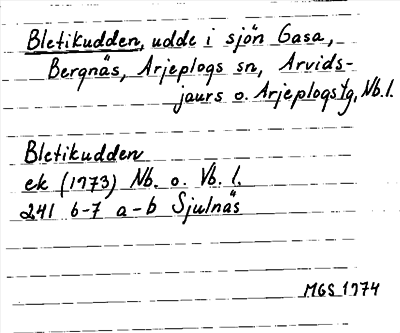 Bletikudden, udde i sjön Gasa,
Bergnäs, Arjeplogs sn, Arvids-
jaurs o. Arjeplogs tg, Nb. l.
Bletikudden
ek (1973) Nb. o. Vb. l.
241 6-7 a-b Sjulnäs
MGS 1974